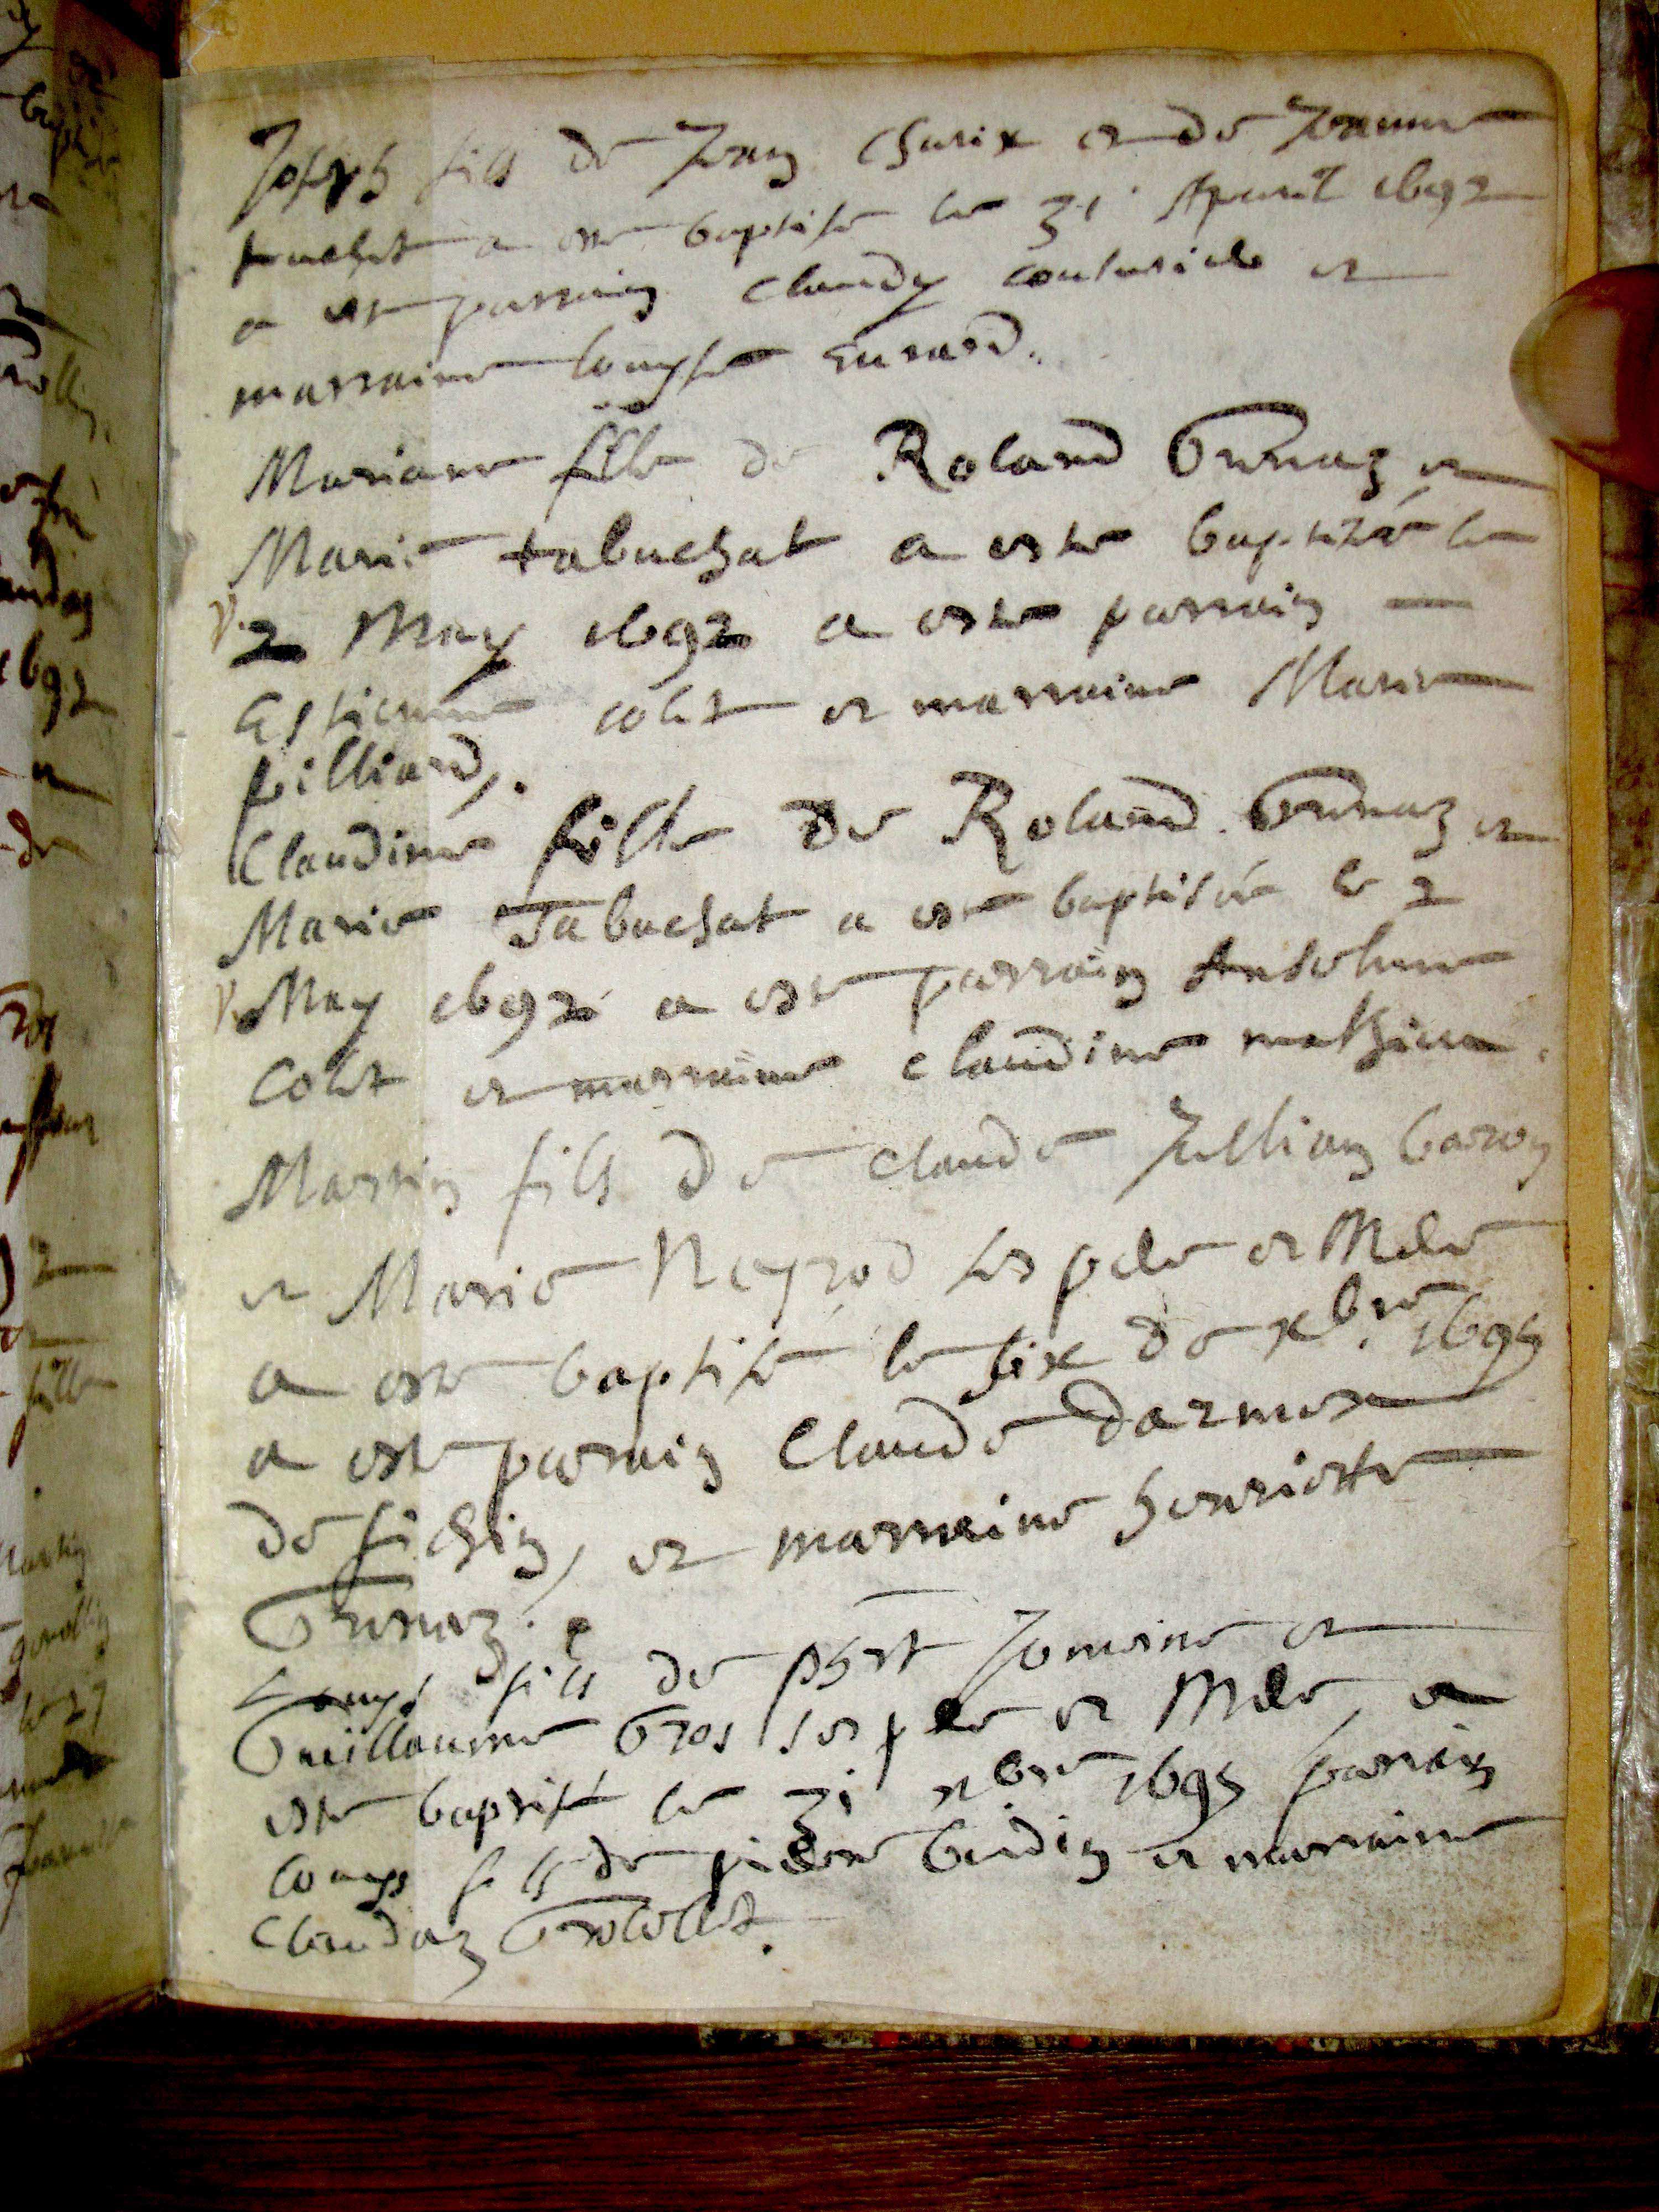 Joseph fils de Jean Charix et de Jeanne
a este baptise le 31 Apuril 1692
a este parrain Claudy et
marraine Louyse
Mariane fille de Roland Grenaz et
Marie tabuchat a este baptizée le
2 May 1692 a este parrain
Estienne Colet et marraine Marie
pilliard,.
Claudine fille de Roland Grenaz et
Marie Tabuchat a este baptisée le 2
May 1692 a este parrain Anselme
Colet et marraine Claudine mathieu.
Martin fils de Claude Jullian baron
et Marie Neyrod ses pere et Mere
a este baptisé le six de xbre 1695
a este parrain Claude darmes
de fichin, et marraine henriette
Grenaz.
Louys fils de phbt Jomeine et
Guillaume Gros ses pere et Mere, a
este baptisé le 31 xbre 1695 parrain
Louys fils de pierre budin et marraine
Claudaz Grobollet.